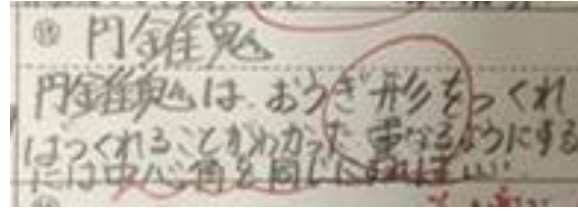 ⑪ 円錐鬼
円錐鬼は、おうぎ形をつくれ
ばつくれることがわかった。重なるようにする
には中心角を同じにすればいい。